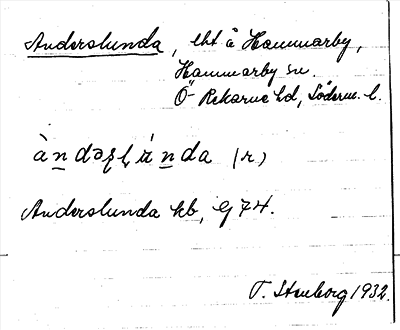 Anderslunda, lht å Hammarby,
Hammarby sn.
Ö-Rekarne hd, Söderm. l.
(r)
Anderslunda kb, G 74.
T. Stenborg 1932.